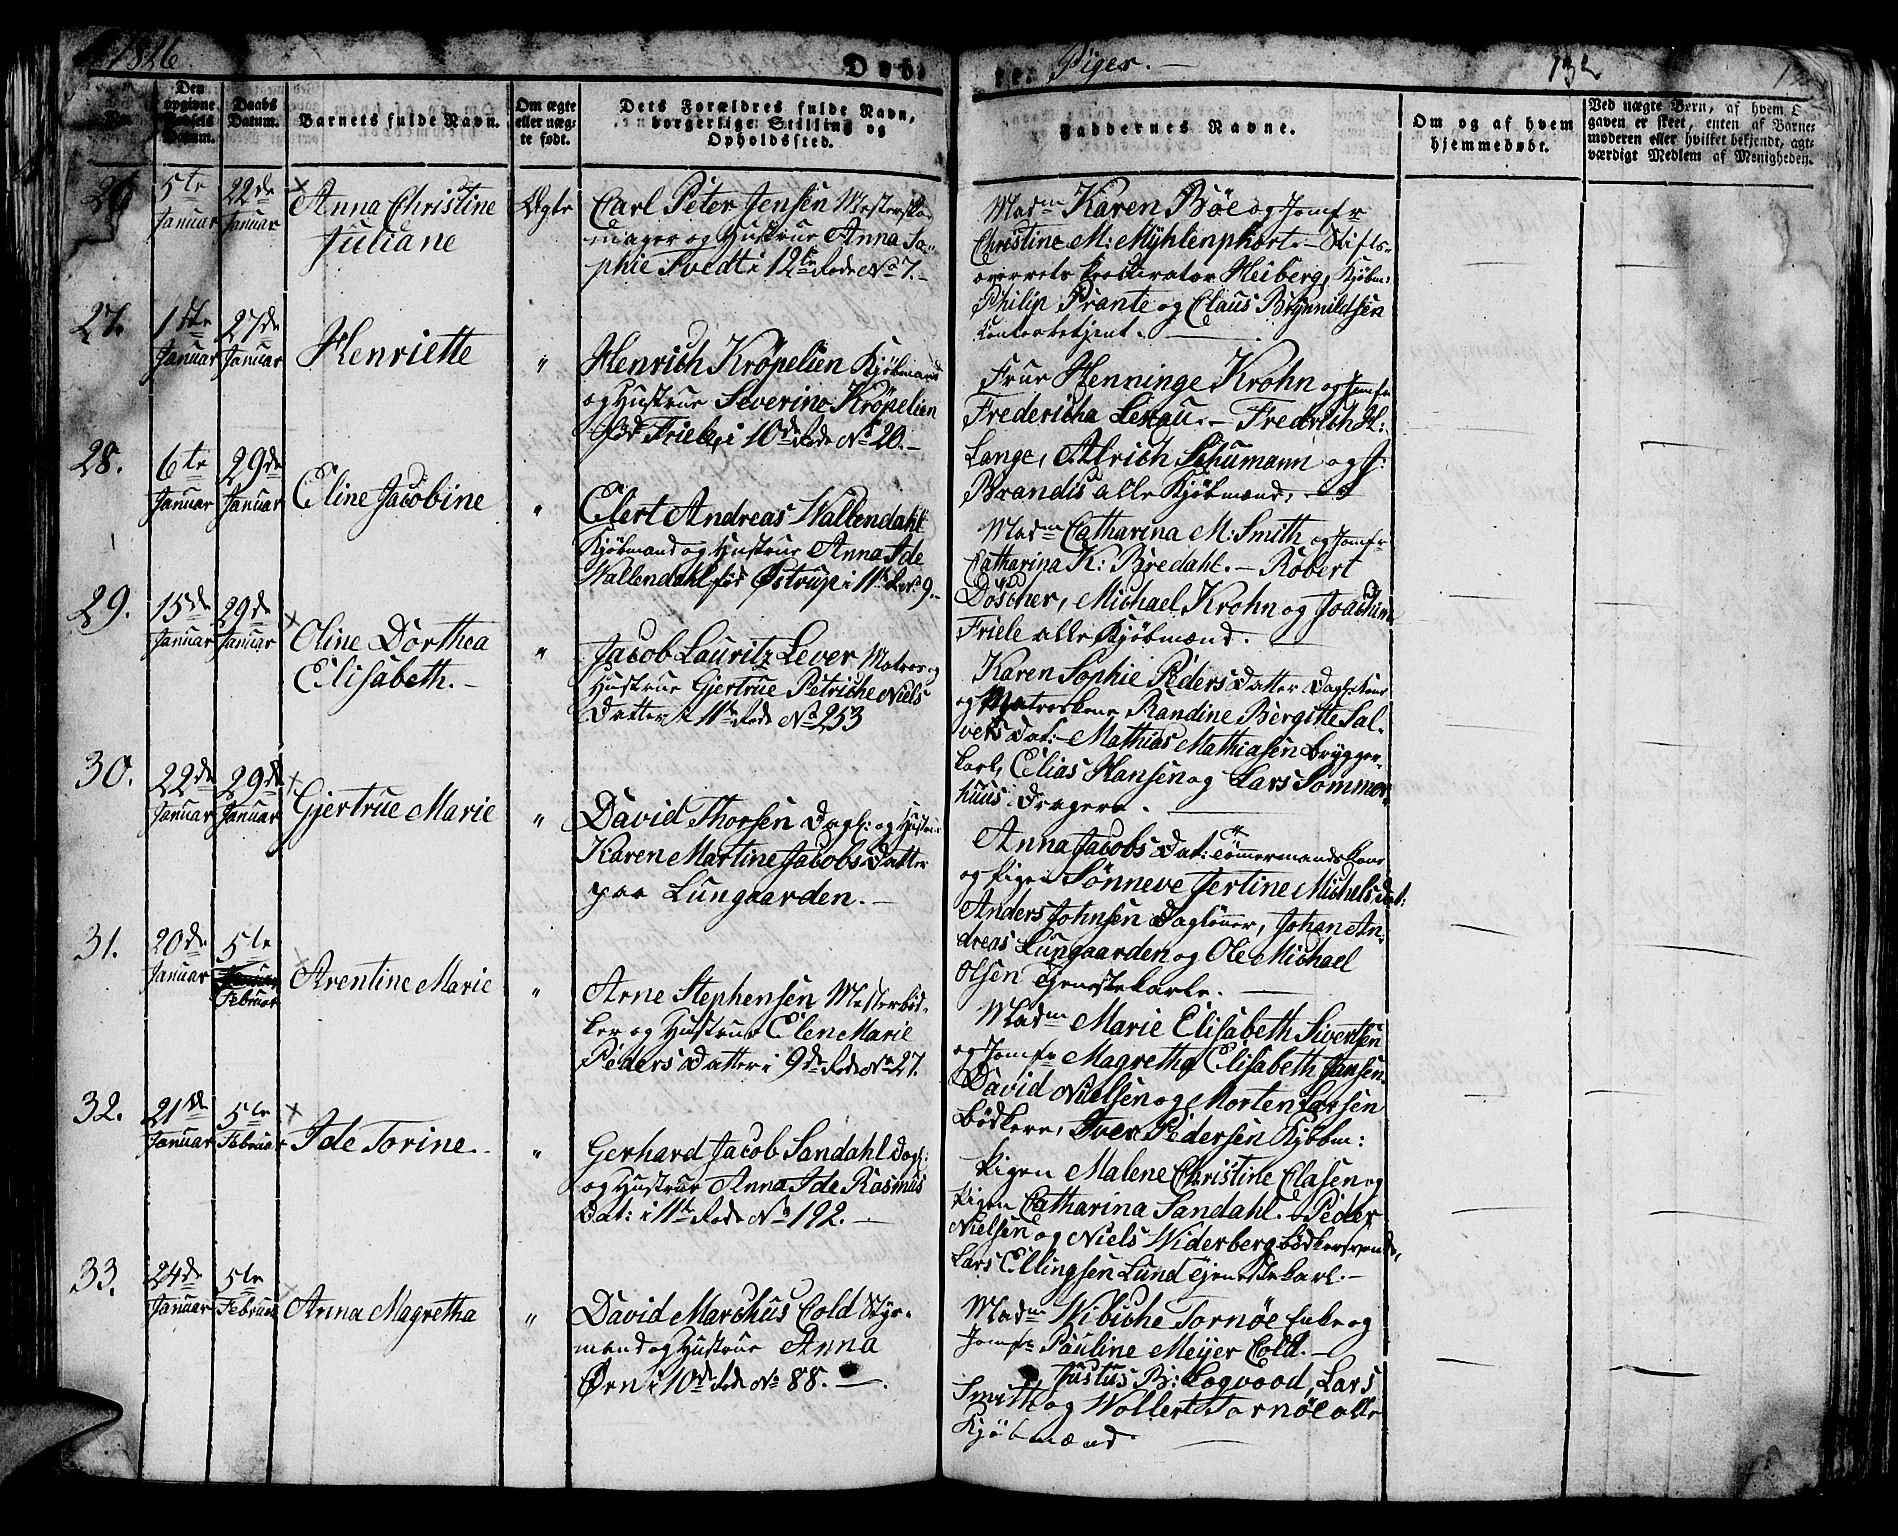 1826
Døb-
te: Piger.-
132
Den opgivne Fødsels Datum.
Daabs Datum.
Barnets fulde Navn.
Om ægte eller uægte født.
Dets Forældres fulde Navn, borgerlige Stilling og Opholdssted.
Faddernes Navne.
Om og af hvem hjemmedøbt.
Ved uægte Børn, af hvem Opgaven er skeet, enten af Barnemoderen eller hvilket bekjendt, agtværdigt Medlem af Menigheden.
26.
5te Januar
22de Januar
Anna Christine
Juliane
Ægte
Carl Peter Jensen Mesterskomager og Hustrue Anna Sophie Svedt i 12te Rode No 7.-
Madm Karen Böe og Jomfr
Christine M: Myhlenphort.- Stifts-
overrets Prokurator Heiberg, Kjøbm:
Philip Prante og Claus Brynnildsen
Contorbetjent.-
27.
1ste Januar
27de Januar
Henriette
"
Henrich Kröpelien Kjöbmand
og Hustrue Severine Kröpelien
föd Friele, i 10de Rode No 20.-
Frue Henninge Krohn og Jomfr
Fredericha Lexau.- Fredrich H:
Lange, Alrich Schumann og J:
Brandis alle Kjöbmænd.
28.
6te Januar
29de Januar
Eline Jacobine
"
Elert Andreas Wallendahl
Kjöbmand og Hustrue Anna Ide
Wallendahl föd Østrup i 11te Rode 9.-
Madm Catharina M: Smith og Jomfr
Catharina K: Bredahl.- Robert
Döscher, Michael Krohn og Joachim
Friele alle Kjöbmænd.
29.
15de Januar
29de Januar
Oline Dorthea
Elisabeth.-
"
Jacob Lauritz Lever Matros og
Hustrue Gjertrue Petriche Niels
Datter i 11te Rode No 253
Karen Sophie Peders Datter Dagl: Kone
og Matroskone Randine Bergitte Sal-
vers Dat:- Mathias Mathiasen Brygger-
karl, Elias Hansen og Lars Sommer-
huus Dragere.
30.
22de Januar
29de Januar
Gjertrue Marie
"
David Thorsen Dagl: og Hustrue
Karen Martine Jacobs Datter
paa Lungaarden.-
Anna Jacobs Dat: Tömmermands Kone
og Pigen Sönneve Jertine Michels Dat:
Anders Johnsen Daglönner, Johan An-
dreas Lungaarden og Ole Michael
Olsen Tjenestekarle.
31.
20de Januar
5te Februar
Arentine Marie
"
Arne Stephensen Mesterbød-
ker og Hustrue Elen Marie
Peders Datter i 9de Rode No 27.
Madm Marie Elisabeth Sivertsen
og Jomfr Magretha Elisabeth Jansen.
David Nielsen og Morten Larsen
Bödkere, Iver Pedersen Kjöbm:
32.
21de Januar
5te Februar
Ide Torine.-
"
Gerhard Jacob Sandahl Dagl:
og Hustrue Anna Ide Rasmus
Dat: i 11te Rode No 192.-
Pigen Malene Christine Clasen og
Pigen Catharina Sandahl.- Peder
Nielsen og Niels Widerberg Bödkersvende,
Lars Ellingsen Lund Tjenestekarl.-
33.
24de Januar
5te Februar
Anna Magretha
"
David Marchus Cold Styr-
mand og Hustrue Anna
Ørn i 10de Rode No 88.-
Madm Wibiche Tornöe Enke og
Jomfr Pauline Meyer Cold.-
Justus B: Logvood, Lars
Smith og Wollert Tornöe alle
Kjöbmænd